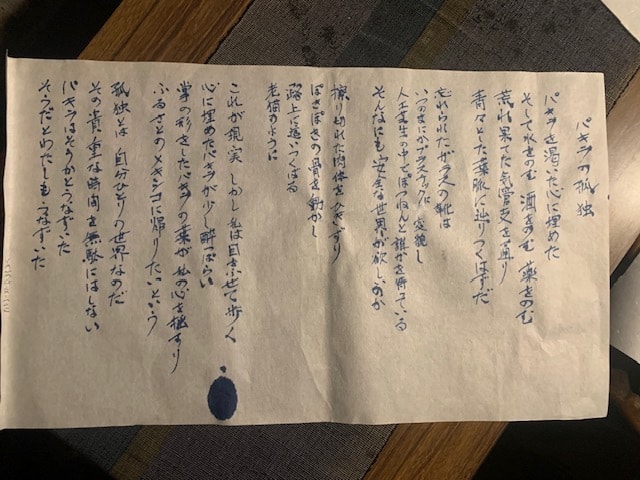 パキラの孤独
パキラを渇いた心に埋めた
そして水をのむ 酒をのむ 薬をのむ
荒れ果てた気管支を通り
青々とした葉脈に辿りつくはずだ
忘れられたガラスの靴は
いつのまにかプラスチックに変貌し
人工芝生の中でぽつねんと誰かを待っている
そんなにも安全な世界が欲しいのか
擦り切れた肉体をひきずり
ぽきぽきの骨を動かし
路上に這いつくばる
老猫のように
これが現実 しかし私は目をふせて歩く
心に埋めたパキラが少し酔ぱらい
掌の形をしたパキラの葉が私の心を揺すり
ふるさとのメキシコに帰りたいという
孤独とは 自分ひとりの世界なのだ
その貴重な時間を無駄にはしない
パキラはそうかとうなずいた
そうだとわたしも うなずいた